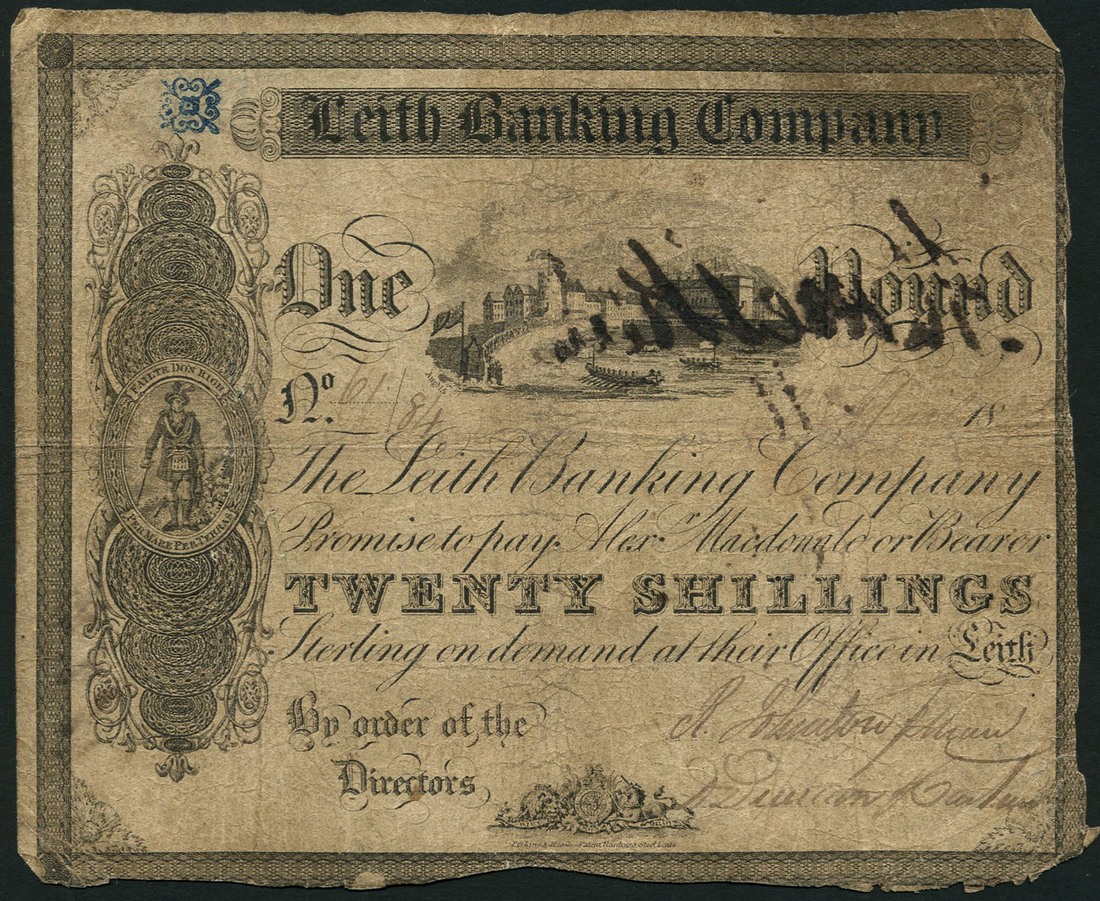 Leith Banking Company
One Pound
No. 61/84 18
FAILTE DON RIGH
PER MARE PER TERRAS
The Leith Banking Company
Promise to pay Alexr. Macdonald or Bearer
TWENTY SHILLINGS
Sterling on demand at their Office in Leith
By order of the
Directors
Patent Hardened Steel Plate